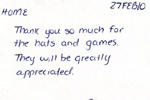 27FEB10
HOME
Thank you so much for
the hats and games.
They will be greatly
appreciated.